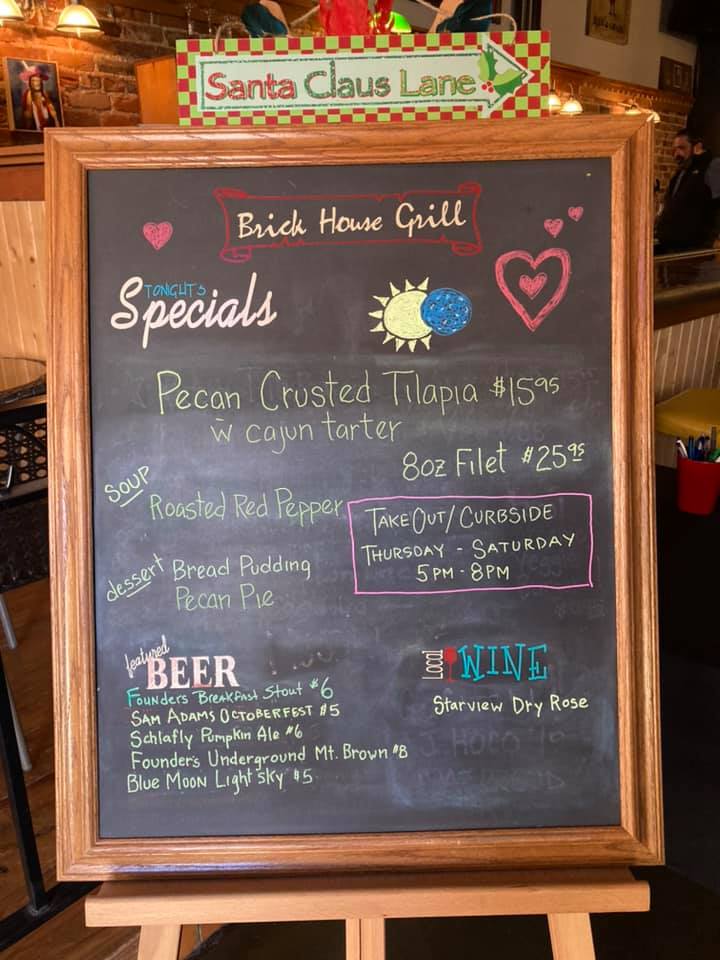 Santa Claus Lane
Brick House Grill
TONIGHT'S
Specials
Pecan Crusted Tilapia $15.95
w cajun tarter
8oz Filet $25.95
SOUP
Roasted Red Pepper
TAKE OUT/CURBSIDE
THURSDAY - SATURDAY
5PM - 8PM
dessert
Bread Pudding
Pecan Pie
featured
BEER
FOUNDERS BREAKFAST STOUT $6
SAM ADAMS OCTOBERFEST $5
Schlafly Pumpkin Ale $6
Founder's Underground Mt. Brown $8
Blue Moon Light Sky $5
Local WINE
Starview Dry Rose